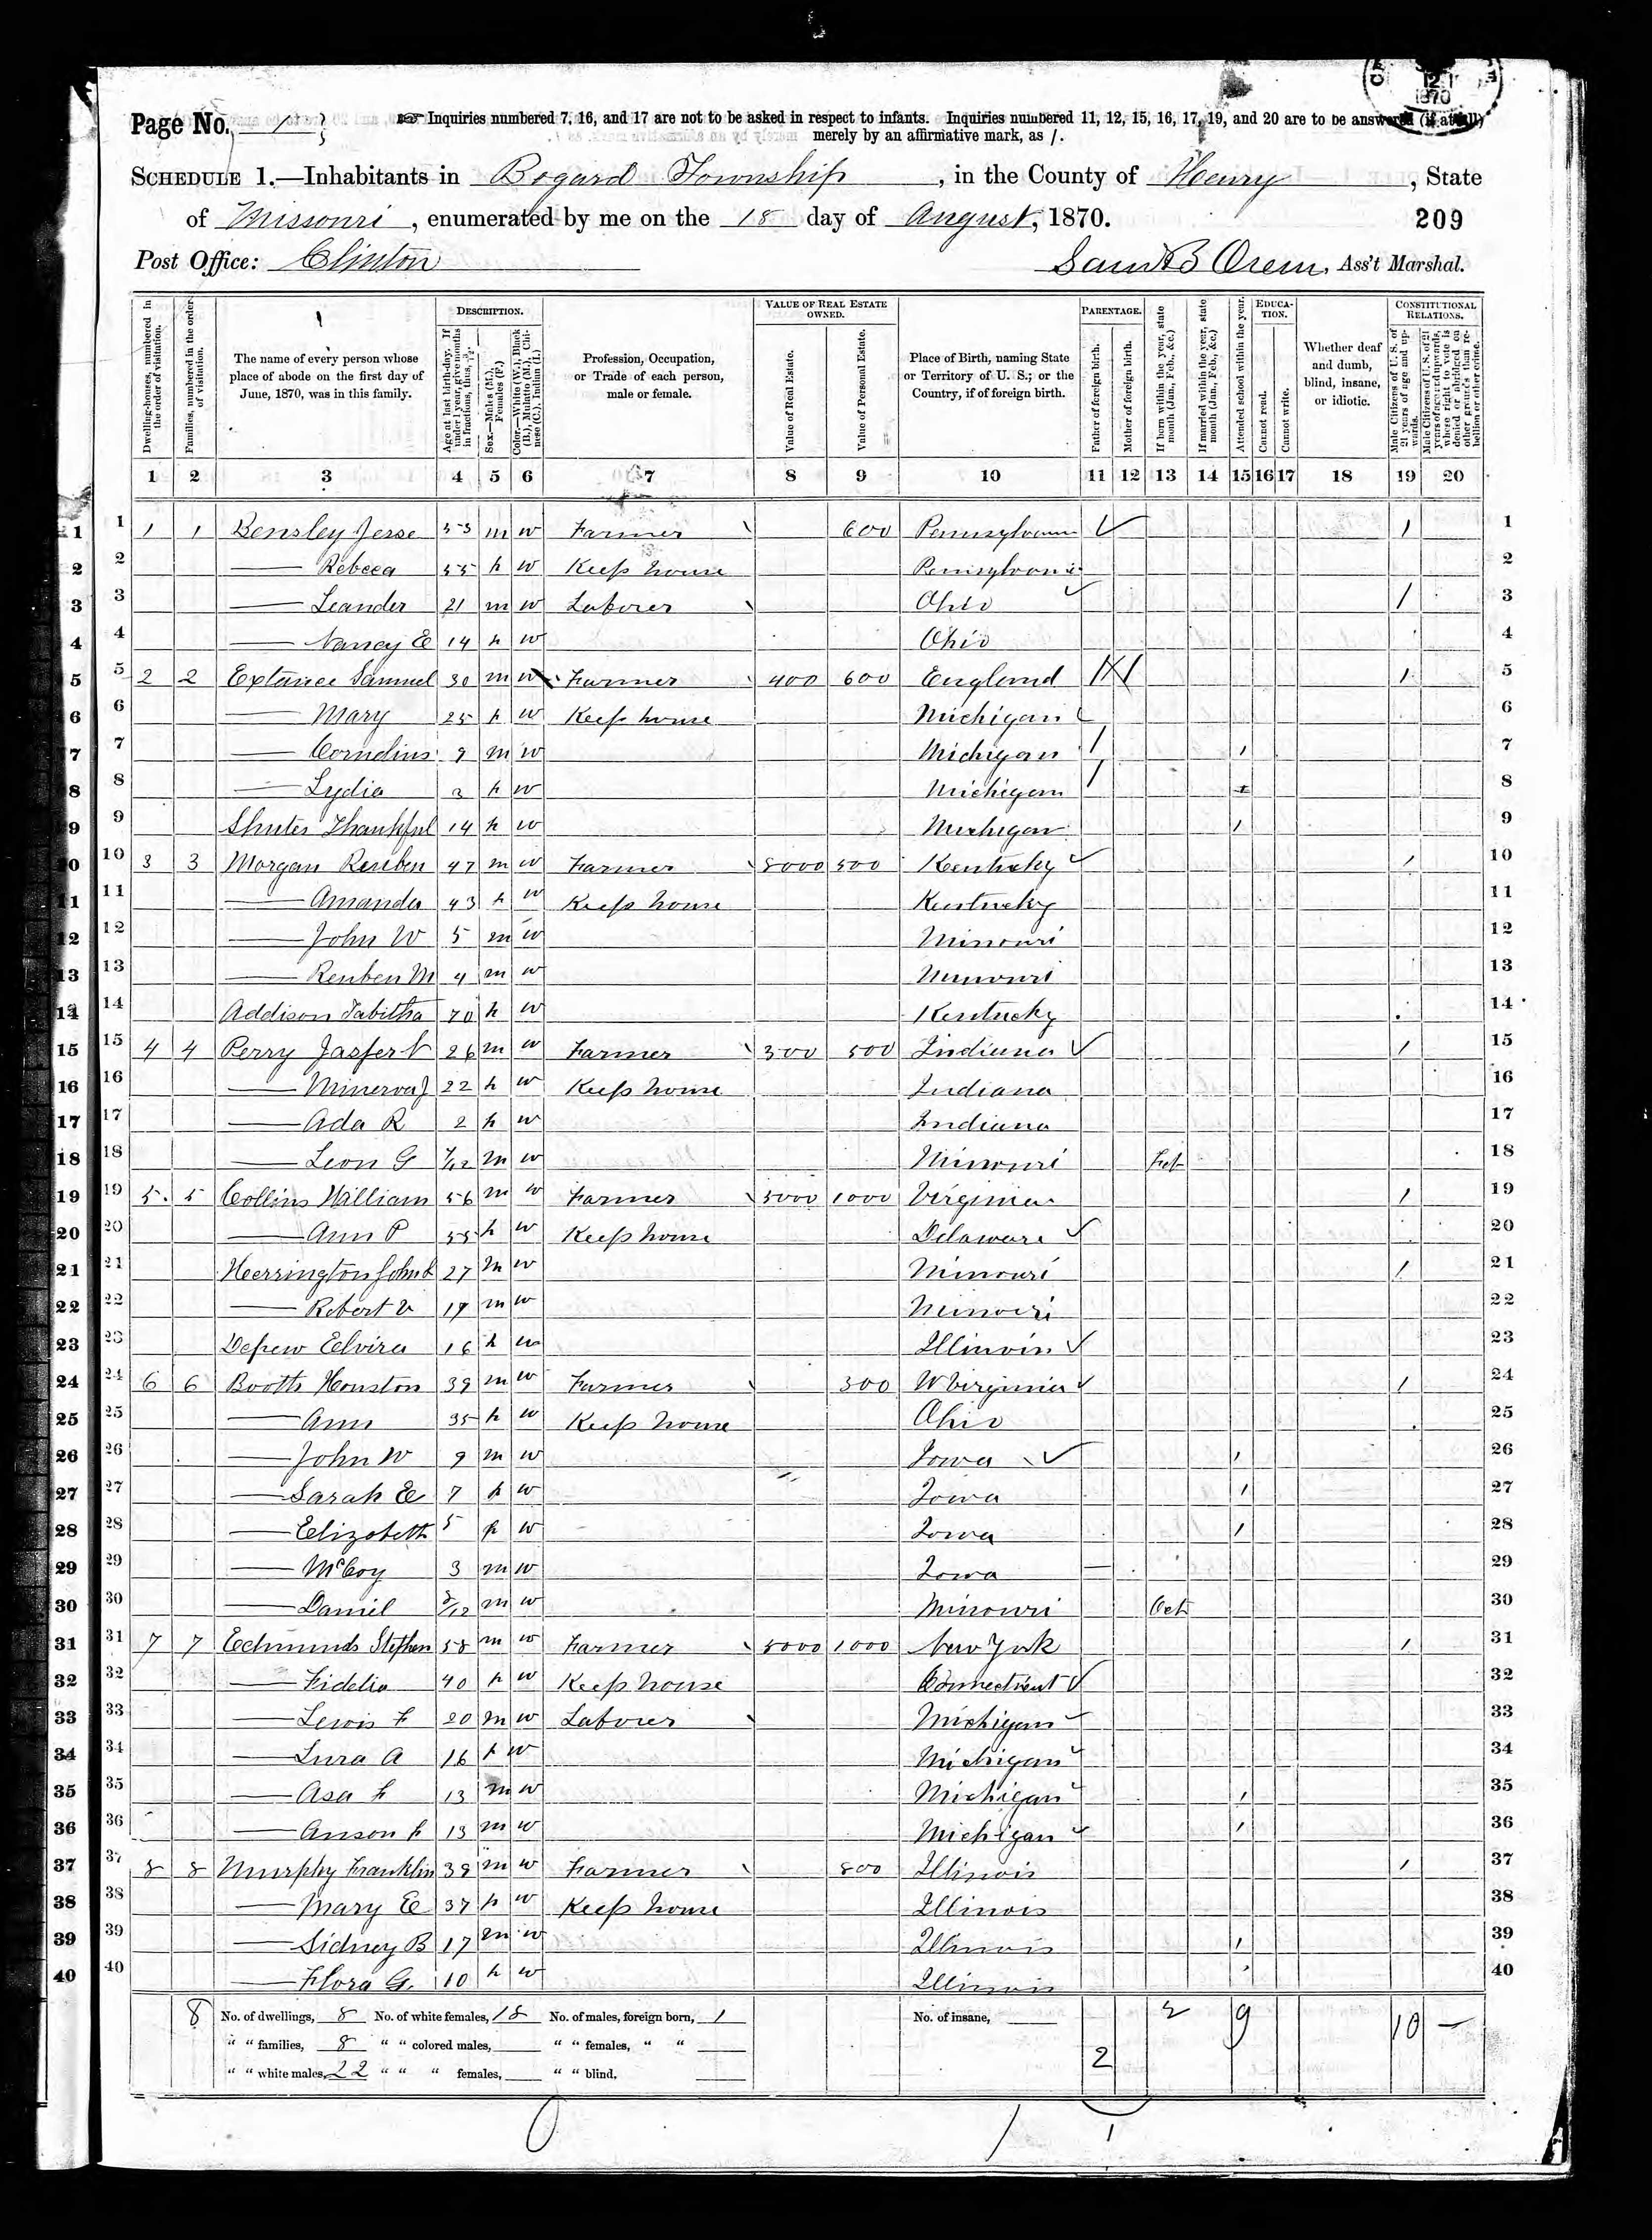 Page No. 1
Inquiries numbered 7, 16, and 17 are not to be asked in respect to infants. Inquiries numbered 11, 12, 15, 16, 17, 19, and 20 are to be answered (if at all)
merely by an affirmative mark, as /.
SCHEDULE 1.—Inhabitants in Bogard Township, in the County of Henry, State
of Missouri, enumerated by me on the 18 day of August, 1870. 209
Post Office: Clinton
Ass't Marshal.
Dwelling-houses, numbered in the order of visitation.
Families, numbered in the order of visitation.
The name of every person whose place of abode on the first day of June, 1870, was in this family.
DESCRIPTION.
Age at last birth-day. If under 1 year, give months in fractions, thus, 3/12.
Sex.—Males (M.), Females (F.)
Color.—White (W.), Black (B.), Mulatto (M.), Chinese (C.), Indian (I.)
Profession, Occupation, or Trade of each person, male or female.
VALUE OF REAL ESTATE OWNED.
Value of Real Estate.
Value of Personal Estate.
Place of Birth, naming State or Territory of U. S.; or the Country, if of foreign birth.
PARENTAGE.
Father of foreign birth.
Mother of foreign birth.
If born within the year, state month (Jan., Feb., &c.)
If married within the year, state month (Jan., Feb., &c.)
Attended school within the year.
EDUCATION.
Cannot read.
Cannot write.
Whether deaf and dumb, blind, insane, or idiotic.
CONSTITUTIONAL RELATIONS.
Male Citizens of U. S. of 21 years of age and upwards.
Male Citizens of U. S. of 21 years of age and upwards, whose right to vote is denied or abridged on other grounds than rebellion or other crime.
1 2 3 4 5 6 7 8 9 10 11 12 13 14 15 16 17 18 19 20
1 1 1 Bensley Jesse 53 m w Farmer 600 Pennsylvania / 1
2 — Rebeca 55 f w Keep house Pennsylvania 2
3 — Leander 21 m w Laborer Ohio / 3
4 — Nancy E 14 f w Ohio 4
5 2 2 Extance Samuel 30 m w Farmer 400 600 England / / / 5
6 — Mary 25 f w Keep house Michigan 6
7 — Cornelius 9 m w Michigan / / 7
8 — Lydia 3 f w Michigan / 8
9 Shuter Thankful 14 f w Michigan / 9
10 3 3 Morgan Reuben 47 m w Farmer 8000 500 Kentucky / 10
11 — Amanda 43 f w Keep house Kentucky 11
12 — John W 5 m w Missouri 12
13 — Reuben M 4 m w Missouri 13
14 Addison Tabitha 70 f w Kentucky 14
15 4 4 Perry Jasper N 26 m w Farmer 300 500 Indiana / 15
16 — Minerva J 22 f w Keep house Indiana 16
17 — Ada R 2 f w Indiana 17
18 — Leon G m w Missouri Feb 18
19 5 5 Collins William 56 m w Farmer 5000 1000 Virginia / 19
20 — Ann P 55 f w Keep house Delaware 20
21 Herrington John 27 m w Missouri / 21
22 — Robert V 19 m w Missouri 22
23 Depew Elvira 16 f w Illinois 23
24 6 6 Booth Houston 39 m w Farmer 300 W Virginia / 24
25 — Ann 35 f w Keep house Ohio 25
26 — John W 9 m w Iowa / 26
27 — Sarah E 7 f w Iowa / 27
28 — Elizabeth 5 f w Iowa / 28
29 — McCoy 3 m w Iowa 29
30 — Daniel 8/12 m w Missouri Oct 30
31 7 7 Edmunds Stephen 58 m w Farmer 5000 1000 New York / 31
32 — Fidelia 40 f w Keep house Connecticut 32
33 — Lewis F 20 m w Laborer Michigan 33
34 — Lura A 16 f w Michigan 34
35 — Asa F 13 m w Michigan / 35
36 — Anson F 13 m w Michigan / 36
37 8 8 Murphy Franklin 39 m w Farmer 800 Illinois / 37
38 — Mary E 37 f w Keep house Illinois 38
39 — Sidney B 17 m w Illinois / 39
40 — Flora G. 10 f w Illinois / 40
8 No. of dwellings, 8 No. of white females, 18 No. of males, foreign born, 1 No. of insane, 2 9 10 —
" " families, 8 " " colored males, " " females, " "
" " white males, 22 " " " females, " " blind, 2